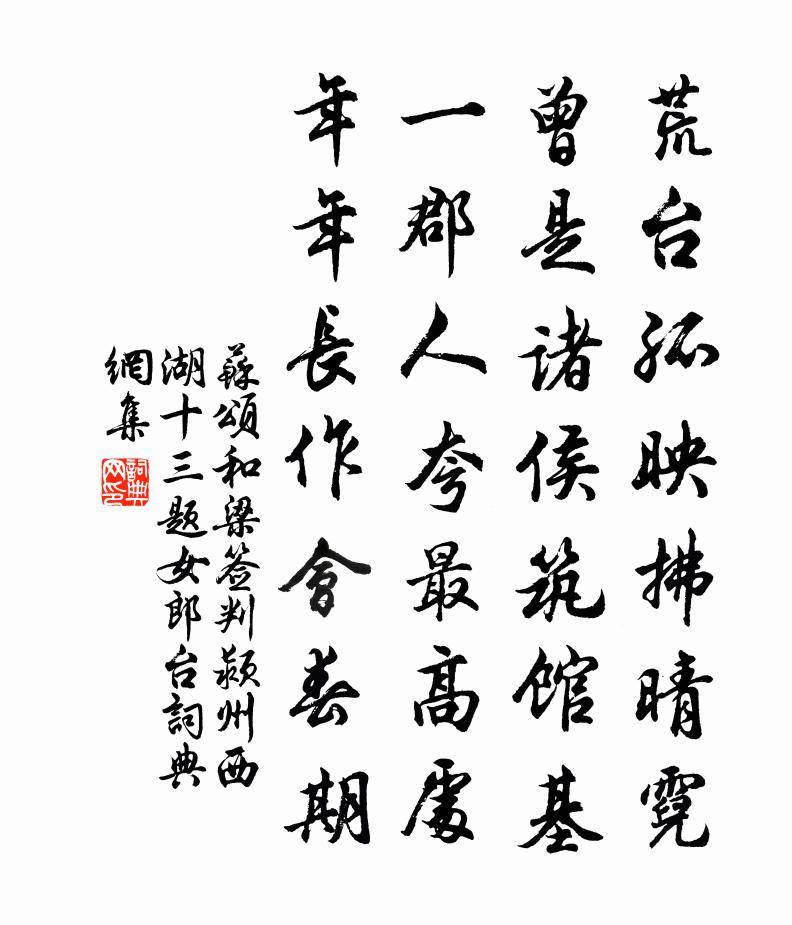 荒台孤映拂晴霓
曾是诸侯筑馆基
一郡人夸最高處
年年長作會春期
蘇頌和梁签判颍州西
湖十三题女郎台詞典
網集
詞典
网印